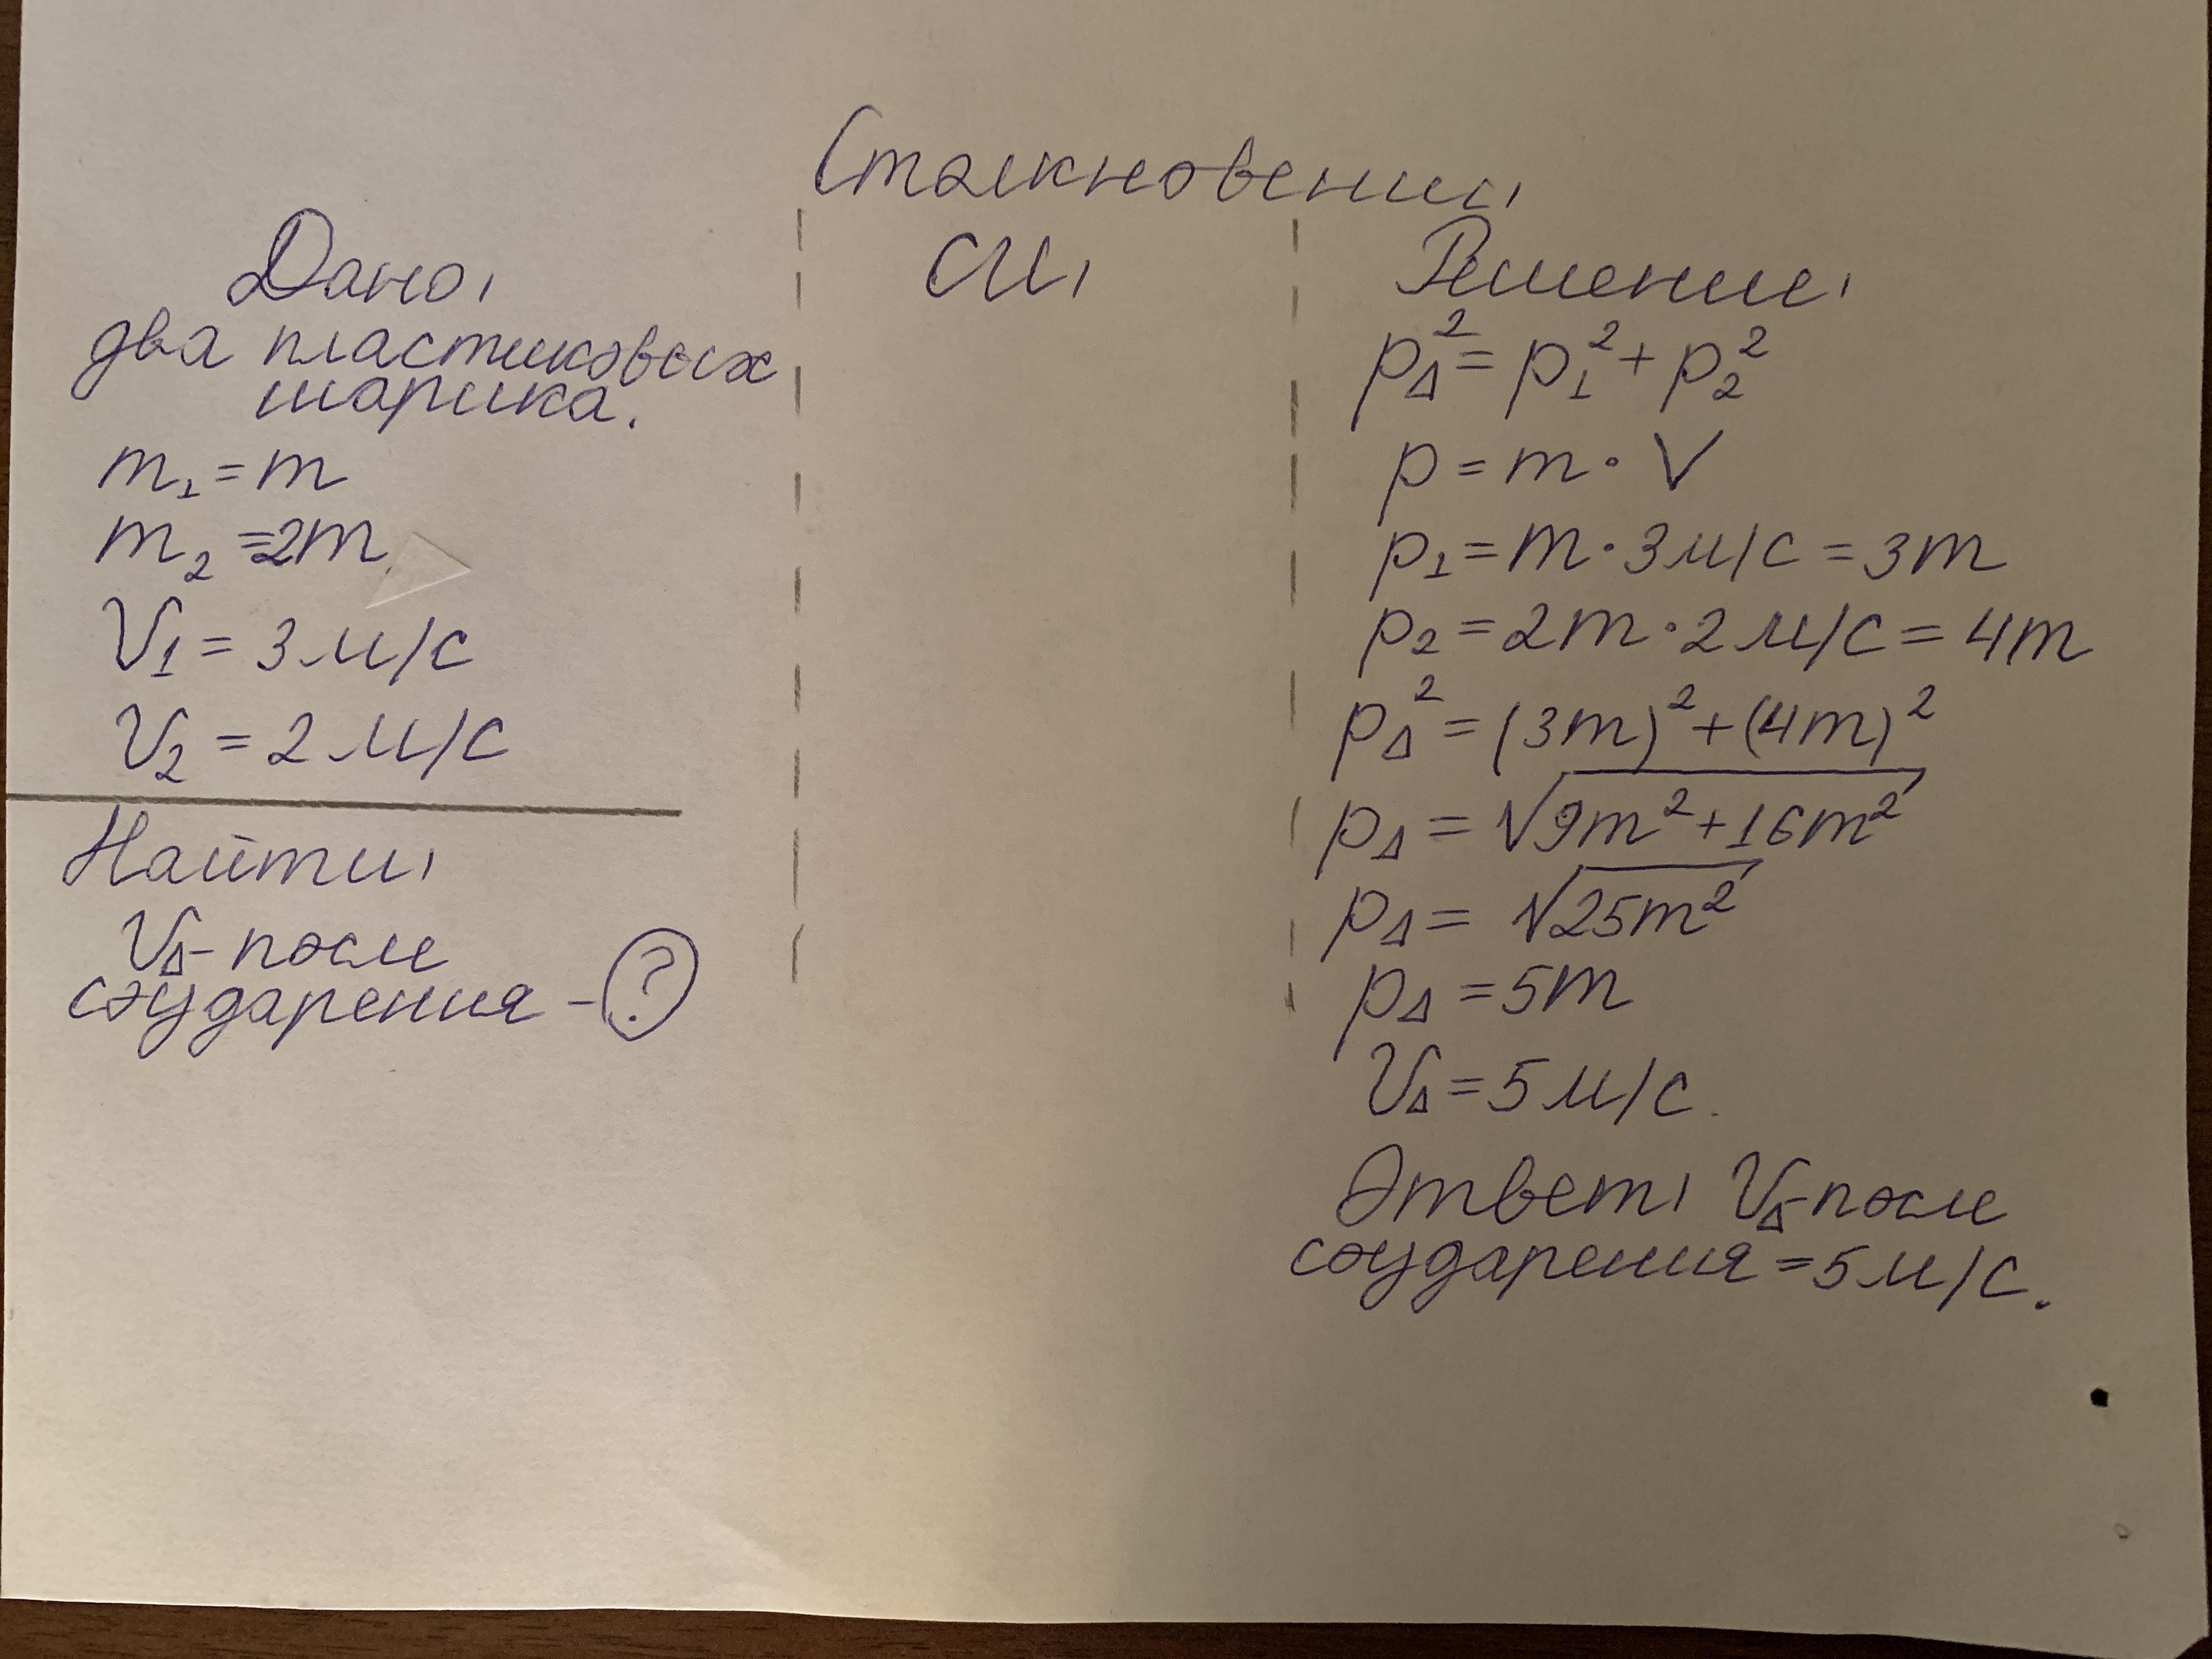 Столкновении,
Дано,
два пластиковых
шарика.
m₁ = m
m₂ = 2m
V₁ = 3 м/с
V₂ = 2 м/с
Найти,
V∆ - после
соударения - ?
СИ,
Решение,
p∆² = p₁² + p₂²
p = m · V
p₁ = m · 3 м/с = 3m
p₂ = 2m · 2 м/с = 4m
p∆² = (3m)² + (4m)²
p∆ = √9m² + 16m²
p∆ = √25m²
p∆ = 5m
V∆ = 5 м/с.
Ответ, V∆ - после
соударения = 5 м/с.